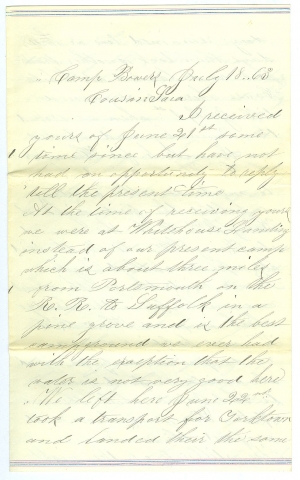 Camp Bowers July 18. 63
Cousin
I received
yours of June 21st some
time since but have not
had an opportunity to reply
till the present time
At the time of receiving yours
we were at Whitehouse Landing
instead of our present camp
which is about three miles
from Portsmouth on the
R. R. to Suffolk in a
pine grove and is the best
campground we ever had
with the exception that the
water is not very good here
We left here June 22nd
took a transport for Yorktown
and landed their the same